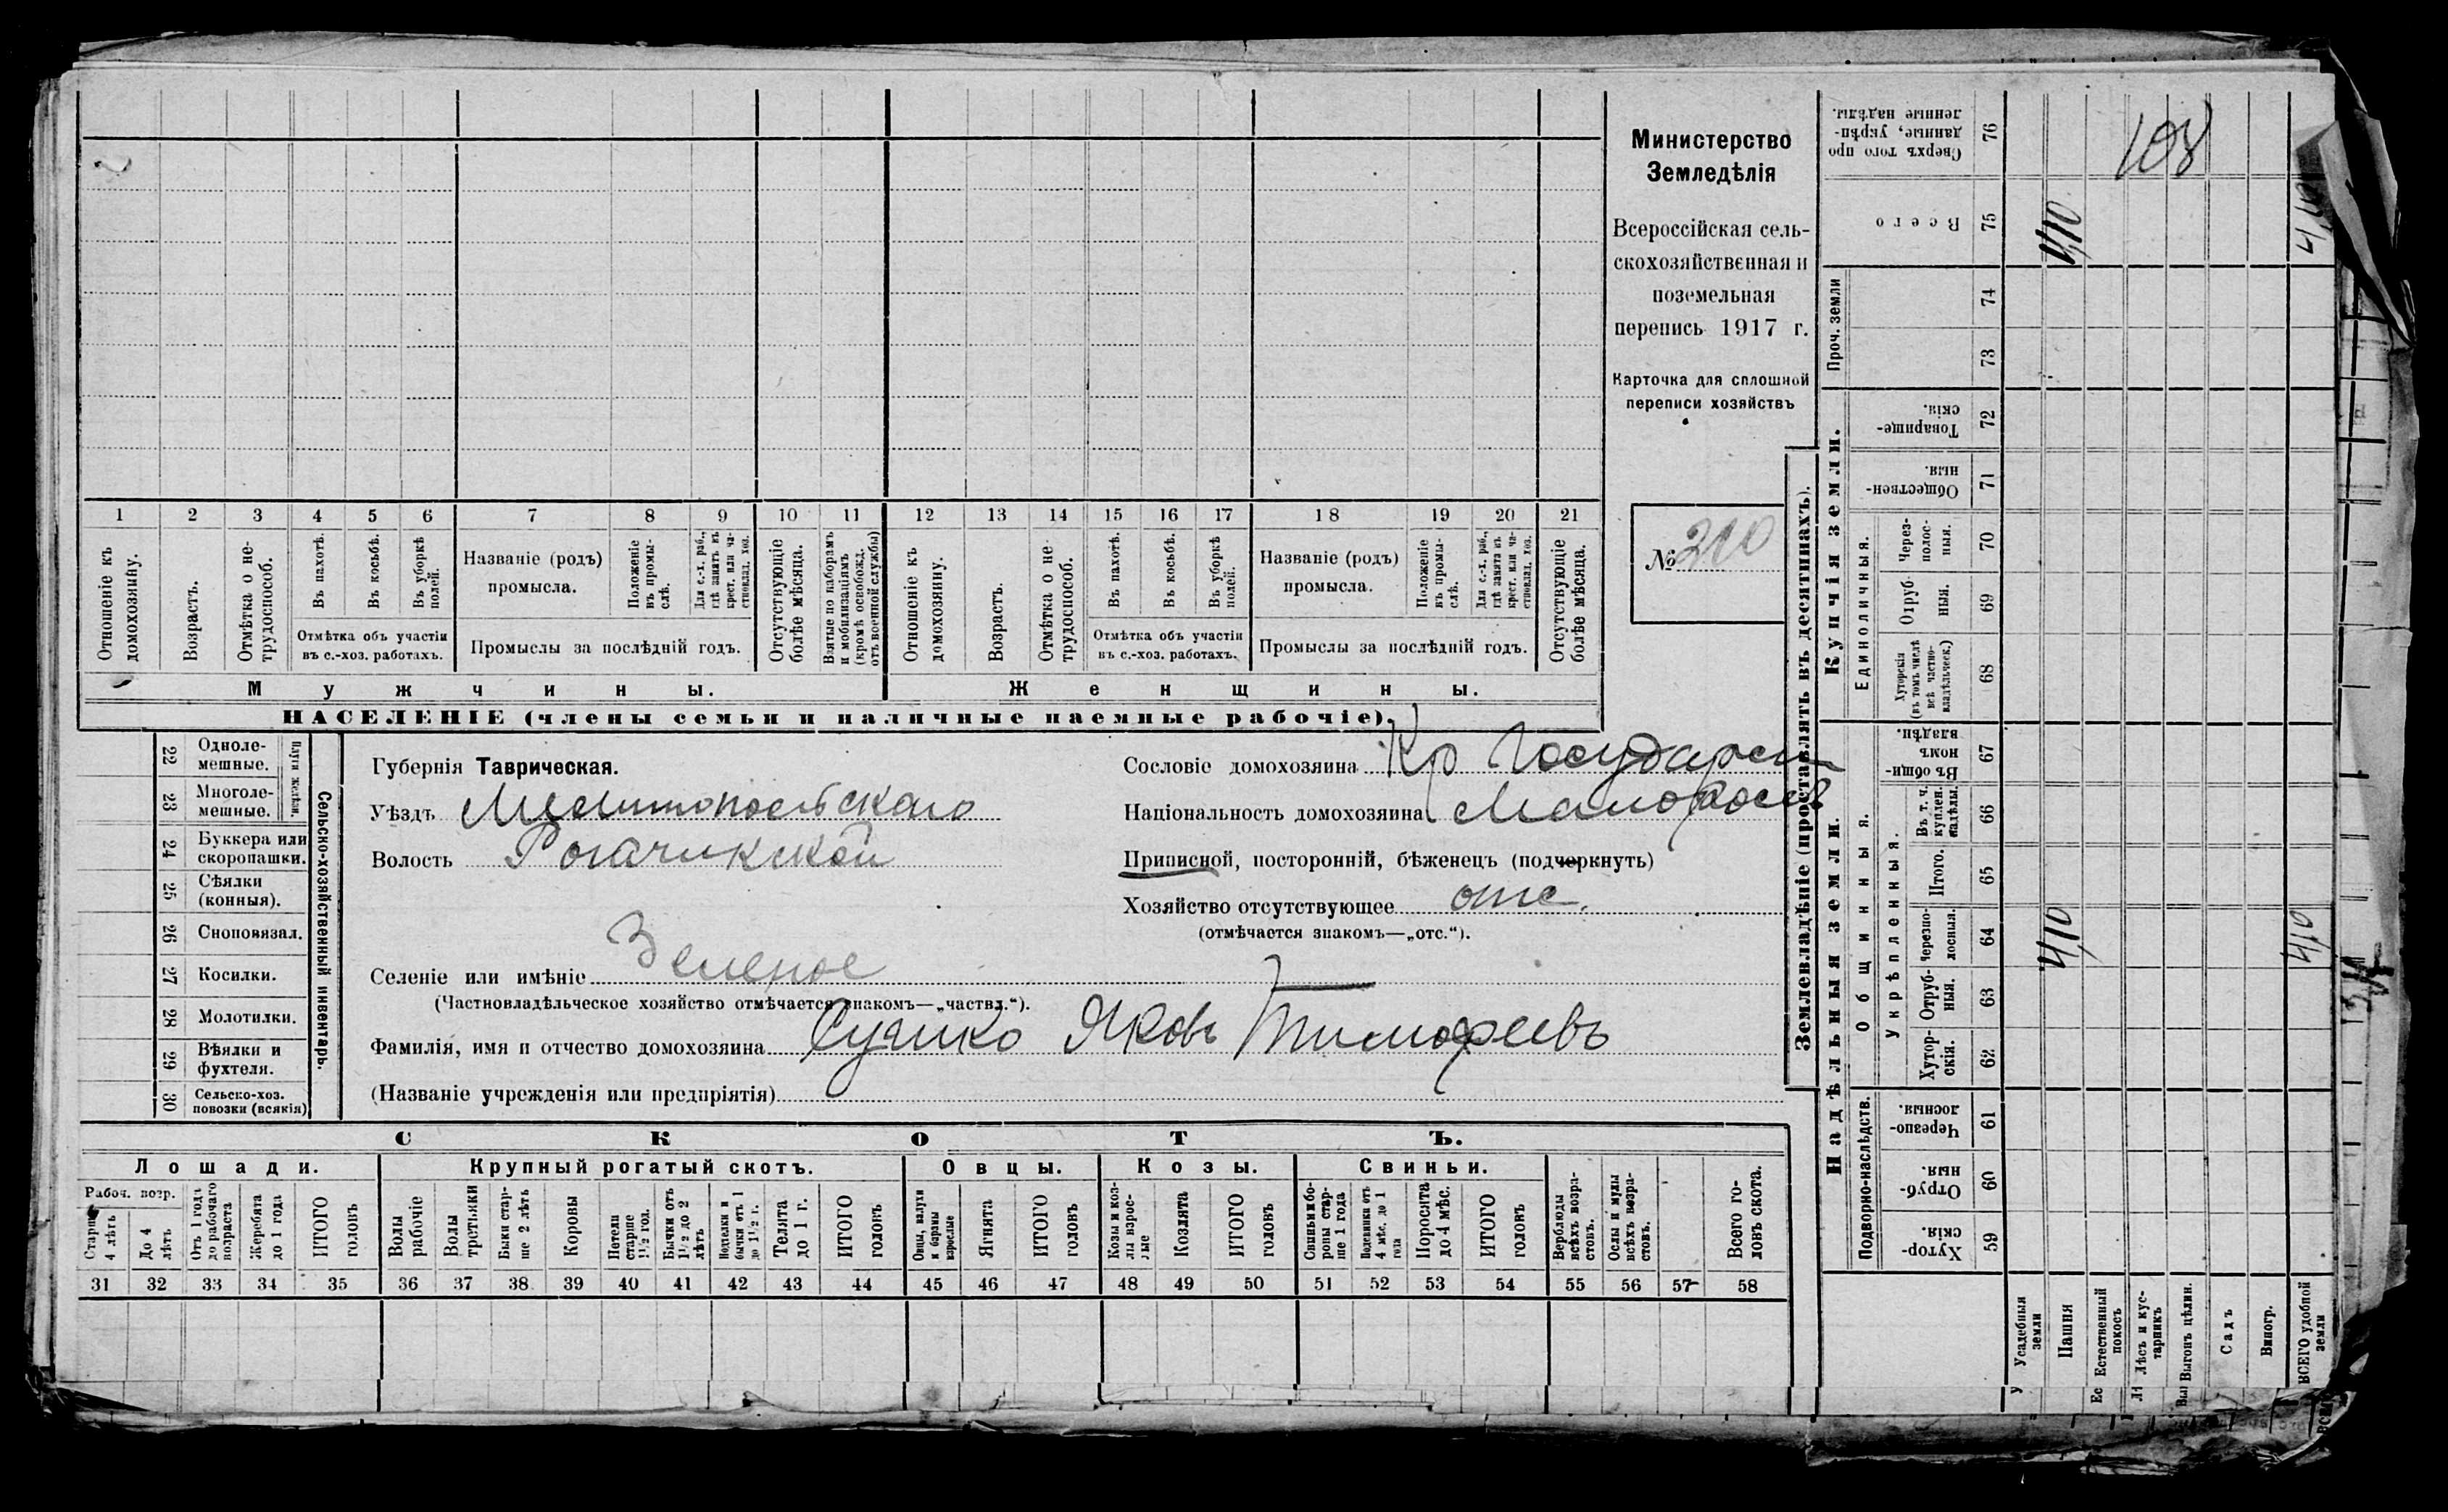 Министерство
Земледѣлія
Всероссійская сель-
скохозяйственная и
поземельная
перепись 1917 г.
Карточка для сплошной
переписи хозяйствъ
№ 210
1 2 3 4 5 6 7 8 9 10 11 12 13 14 15 16 17 18 19 20 21
Отношеніе къ домохозяину.
Возрастъ.
Отмѣтка о не-трудоспособ.
Въ пахотѣ.
Въ косьбѣ.
Въ уборкѣ полей.
Отмѣтка объ участіи
въ с.-хоз. работахъ.
Названіе (родъ)
промысла.
Положеніе въ промы-слѣ.
Для с.-х. раб., гдѣ занятъ въ крест. или ча-стновлад. хоз.
Промыслы за послѣдній годъ.
Отсутствующіе болѣе мѣсяца.
Взятые по наборамъ и мобилизаціямъ (кромѣ освобожд. отъ военной службы)
Отношеніе къ домохозяину.
Возрастъ.
Отмѣтка о не-трудоспособ.
Въ пахотѣ.
Въ косьбѣ.
Въ уборкѣ полей.
Отмѣтка объ участіи
въ с.-хоз. работахъ.
Названіе (родъ)
промысла.
Положеніе въ промы-слѣ.
Для с.-х. раб., гдѣ занятъ въ крест. или ча-стновлад. хоз.
Промыслы за послѣдній годъ.
Отсутствующіе болѣе мѣсяца.
Мужчины.
Женщины.
НАСЕЛЕНІЕ (члены семьи и наличные наемные рабочіе).
22 Одноле-мешные.
23 Многоле-мешные.
24 Буккера или скоропашки.
25 Сѣялки (конныя).
26 Сноповязал.
27 Косилки.
28 Молотилки.
29 Вѣялки и фухтеля.
30 Сельско-хоз. повозки (всякія)
Сельско-хозяйственный инвентарь.
Губернія Таврическая.
Уѣздъ Мелитопольскаго
Волость Рогачикской
Селеніе или имѣніе Зеленое
(Частновладѣльческое хозяйство отмѣчается знакомъ—„частвл.“).
Фамилія, имя и отчество домохозяина Сушко Яковъ Тимофеевъ
(Названіе учрежденія или предпріятія)
Сословіе домохозяина Кр Государст
Національность домохозяина Малоросъ
Приписной, посторонній, бѣженецъ (подчеркнуть)
Хозяйство отсутствующее отс.
(отмѣчается знакомъ—„отс.“).
СКОТЪ.
Лошади.
Крупный рогатый скотъ.
Овцы.
Козы.
Свиньи.
Рабоч. возр.
Старше 4 лѣтъ
До 4 лѣтъ
Отъ 1 года до рабочаго возраста
Жеребята до 1 года
ИТОГО головъ
Волы рабочіе
Волы третьяки
Быки стар-ше 2 лѣтъ
Коровы
Нетели старше 1½ год.
Бычки отъ 1½ до 2 лѣтъ
Подтелки и бычки отъ 1 до 1½ г.
Телята до 1 г.
ИТОГО головъ
Овцы, валухи и бараны взрослые
Ягнята
ИТОГО головъ
Козы и коз-лы взрос-лые
Козлята
ИТОГО головъ
Свиньи и бо-ровы стар-ше 1 года
Подсвинки отъ 4 мѣс. до 1 года
Поросята до 4 мѣс.
ИТОГО головъ
Верблюды всѣхъ возра-стовъ.
Ослы и мулы всѣхъ возра-стовъ.
Всего го-ловъ скота.
31 32 33 34 35 36 37 38 39 40 41 42 43 44 45 46 47 48 49 50 51 52 53 54 55 56 57 58
Землевладѣніе (проставлять въ десятинахъ).
Надѣльныя земли.
Купчія земли.
Проч. земли
Подворно-наслѣдств.
Общинныя.
Укрѣпленныя.
Единоличныя.
59 Хутор-скія.
60 Отруб-ныя.
61 Черезпо-лосныя.
62 Хутор-скія.
63 Отруб-ныя.
64 Черезпо-лосныя.
65 Итого.
66 Въ т. ч. куплен. надѣлы.
67 Въ общи-номъ владѣн.
68 Хуторскія (въ томъ числѣ всѣ частно-владѣльческ.)
69 Отруб-ныя.
70 Через-полос-ныя.
71 Обществен-ныя.
72 Товарище-скія.
73
74
75 Всего
76 Сверхъ того про данные, укрѣп-ленные надѣлы.
Усадебныя земли
Пашня
Естественный покосъ
Лѣсъ и кус-тарникъ
Выгонъ цѣлин.
Садъ
Виногр.
ВСЕГО удобной земли
4,10
4,10
4,10
4,10
108